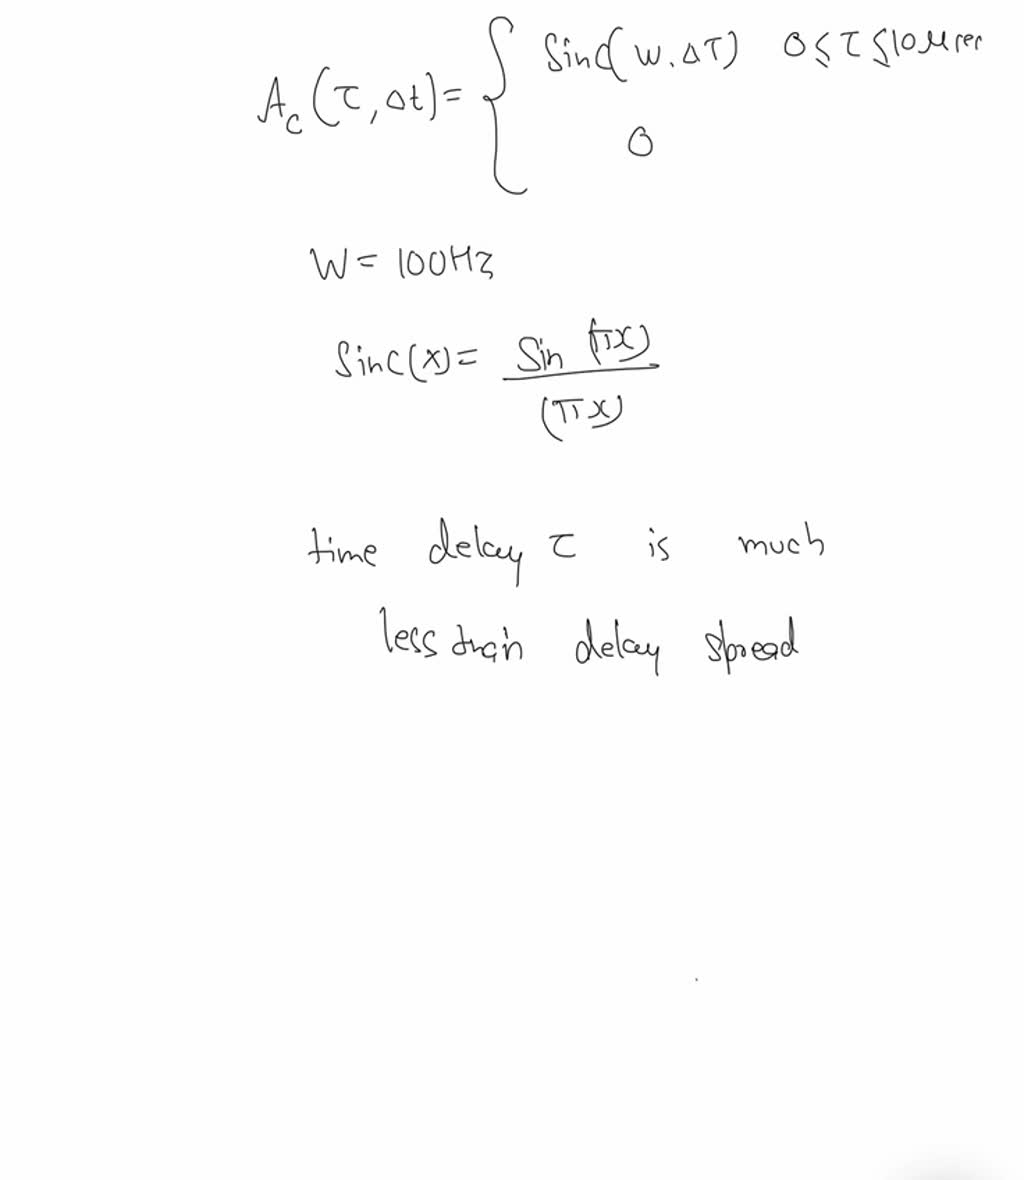 A_c(τ,Δt)= { Sinc(W.Δτ) 0≤τ≤10μsec
0
W = 100Hz
Sinc(x)= Sin (πx)
(πx)
time delay τ is much
less than delay spread